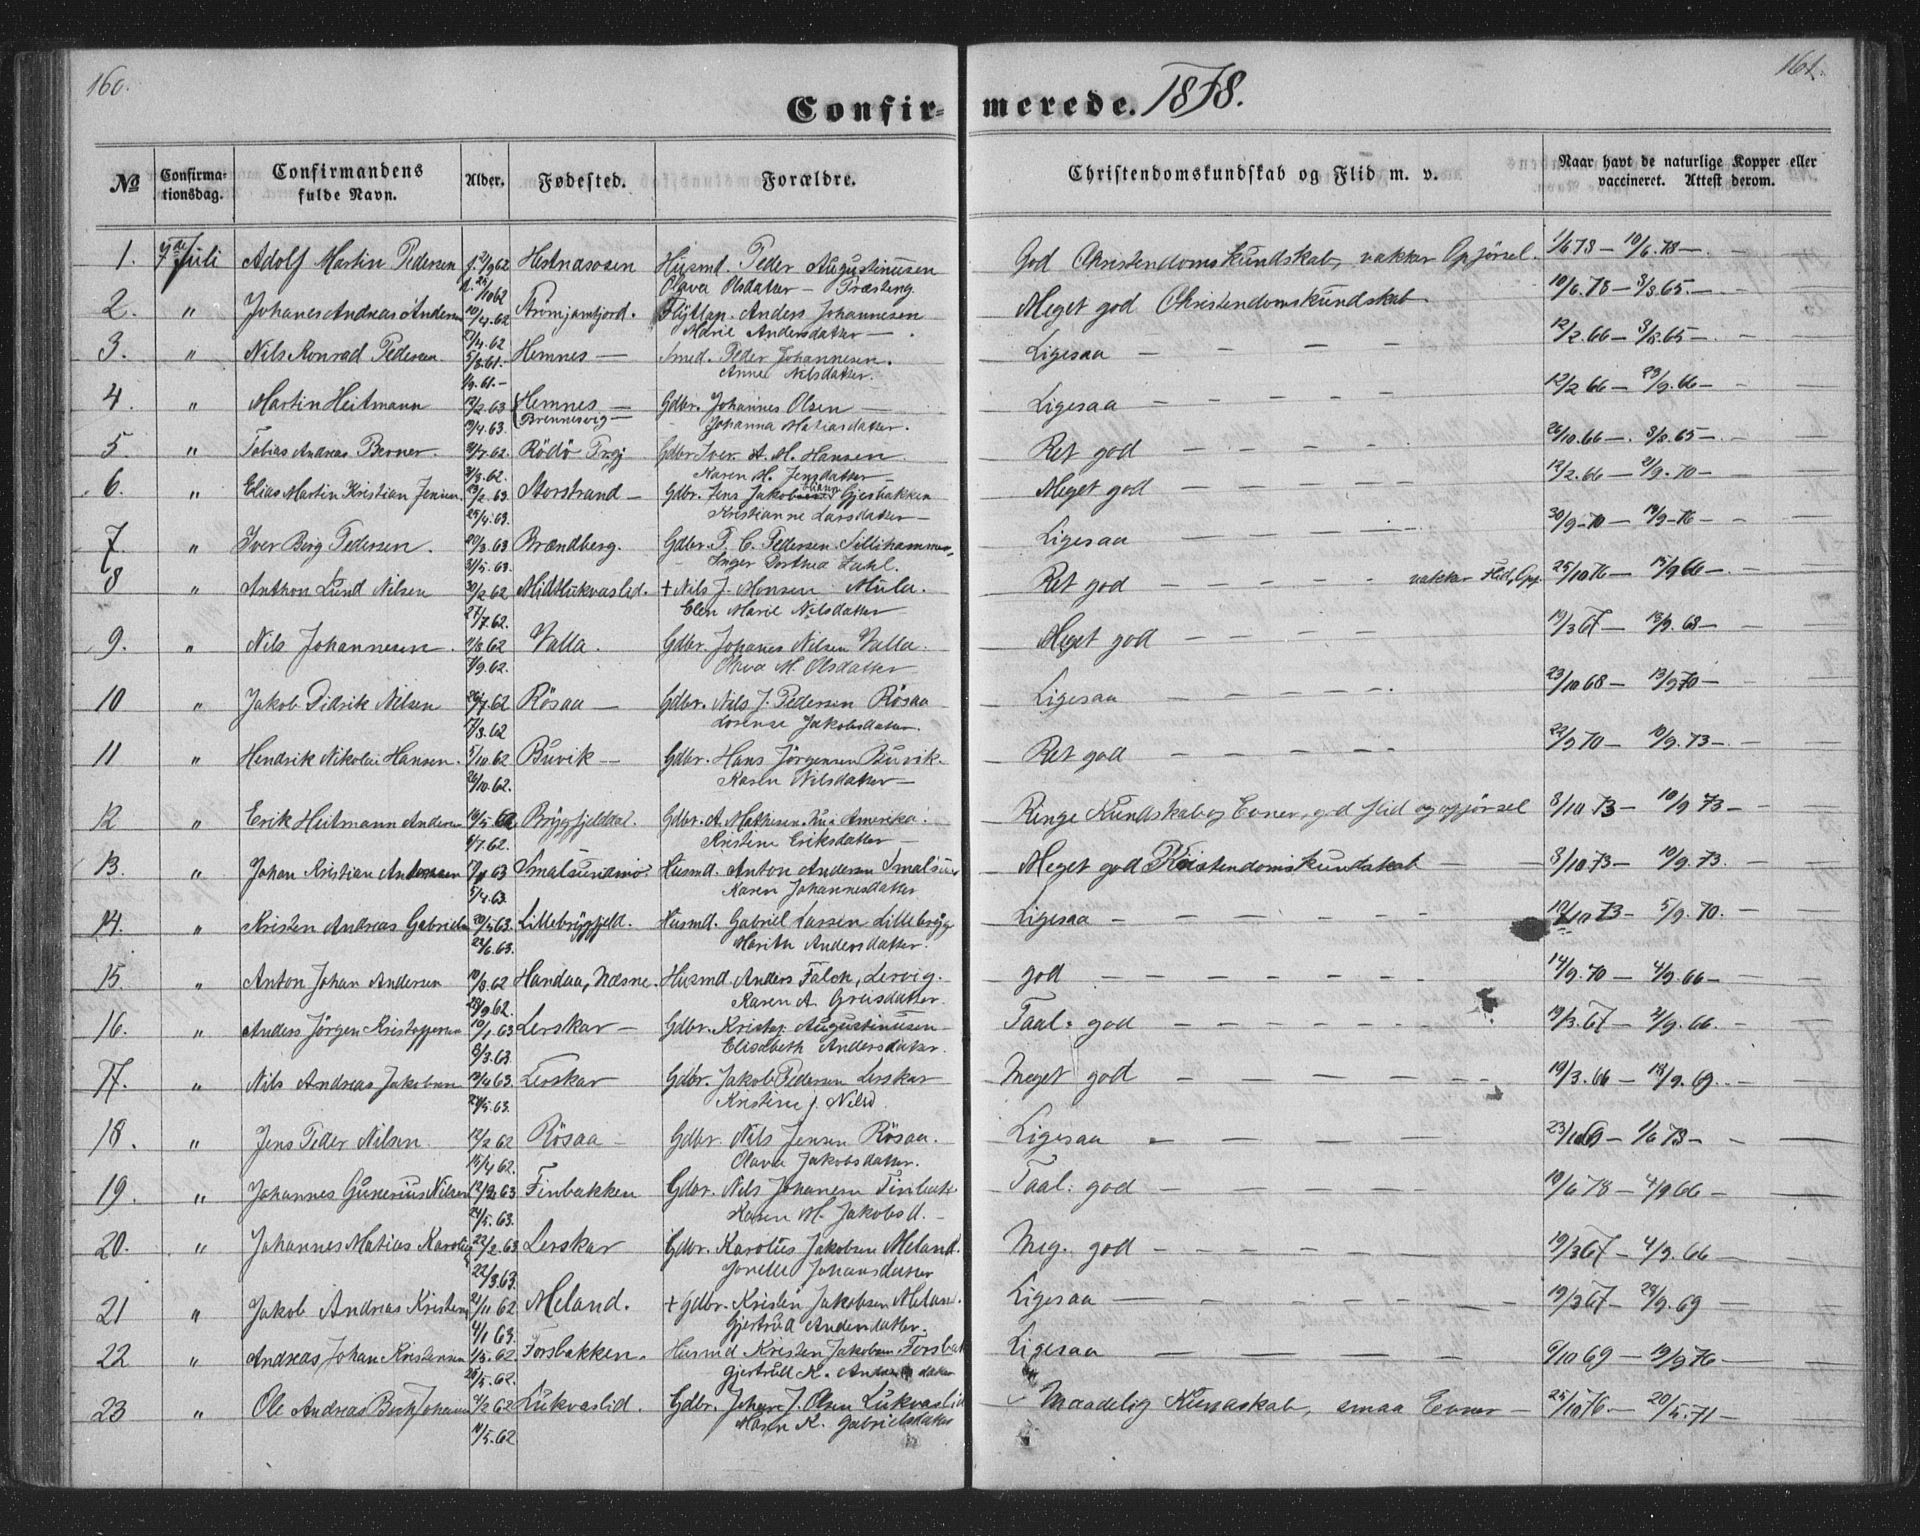 160.
161.
Confir- merede. 1878.
No Confirma-tionsdag. Confirmandens fulde Navn. Alder. Fødested. Forældre. Christendomskundskab og Flid m. v. Naar havt de naturlige Kopper eller vaccineret. Attest derom.
1. 7de Juli Adolf Martin Pedersen f. 21/9 62 Husmd. Peder Augustinusen God Christendomskundskab, vakker Opførsel. 1/6 78 — 10/6. 78 —
Olava Olsdatter —
2. " Johanes Andreas Anders 10/4. 62 Anders Johannesen Meget god Christendomskundskab 10/6. 78 — 3/8. 65. —
Marie Andersdatter —
3. " Nils Konrad Pedersen 5/8. 61. Hemnes — Smed. Peder Johannesen. Ligesaa — — — — 12/2. 66 — 3/8. 65 —
1/9. 61. — Anne Nilsdatter.
4. " Martin Heitmann 12/2. 63 Hemnes — Gdbr. Johannes Olsen — Ligesaa — — — — 12/2 66 — 23/9. 66 —
19/4. 63. Brennesvig — Johanna Matiasdatter.
5. " Tobias Andreas Berner. Rödö Prgj Gdbr Iver A. M. Hansen Ret god — — — 26/10. 66 —. 3/8. 65 —
Karen H. Jensdatter —
6. " Elias Martin Kristian Jensen 23/2. 63 Storstrand — Gdbr. Jens Gjesbakken Meget god — — — 12/2. 66 — 21/9. 70 —
25/4. 63. Kristianne Larsdatter —
7. " Iver Berg Pedersen. 20/3. 63 Brændberg. Gdbr. P. C. Pedersen Ligesaa — — — 30/9 - 70 — 19/9 - 76 —
31/5. 63. Inger Dorthea Dahl.
8 " Anthon Lund Nilsen Midtlukvaslid. + Nils J. Monsen Mula. Ret god — — — vakker Flid, Opf. 25/10 76 — 15/9 66 —
27/7. 62. Elen Marie Nilsdatter
9. " Nils Johannesen. 1/8 62 Valla. Gdbr. Johanes Nilsen Valla. Meget god — — — 19/3 67 — 13/9. 68 —
1/9 62. Oliva M. Olsdatter
10 " Jakob Didrik Nilsen 26/7. 62 Rösaa — Gdbr. Nils J. Pedersen Rösaa Ligesaa — — — 23/10 68 — 13/9 70 —
17/8. 62 Lorense Jakobsdatter.
11 " Hendrik Nikolai Hansen. 5/10 62 Buvik — Gdbr. Hans Jörgensen Buvik. Ret god — — — 22/9 70 — 10/9. 73 —
26/10. 62. Karen Nilsdatter —
12 " Erik Heitmann Anders Bryggfjelddal. Gdbr. A. Mathisen Amerika. Ringe Kundskab og Evner, god flid og opførsel 8/10 73 — 10/9 73 —
1/7. 62. Kristine Eriksdatter —
13. " Johan Kristian Andersen Smalsundmo Husmd. Anton Andersen Smalsun Meget god Kristendomskundskab — 8/10 73 — 10/9. 73. —
5/4 63. Karen Johannesdatter
14. " Kristen Andreas Gabriels 20/5 63. Lillebryggfjeld. Husmd. Gabriel Larsen Lillebrygg Ligesaa — — — — 10/10 73 — 5/9. 70. —
24/6. 63. Marith Andersdatter.
15. " Anton Johan Andersen 10/8. 62 Handaa, Næsne. Husmd. Anders Falch, Lervig. god — — — — 14/9. 70 — 4/9. 66 —
28/9 62. Karen A. Greisdatter.
16. " Anders Jörgen Kristoffersen 10/1. 63 Lerskar — Gdbr. Kristof. Augustinusen Taal. god — — — — 19/3. 67 — 21/9. 66. —
8/3. 63. Elisabeth Andersdatter.
17. " Nils Andreas Jakobsen 19/4 63. Lerskar Gdbr. Jakob Pedersen Lerskar Meget god — — — — 19/3. 66 — 18/9. 69. —
24/5. 63. Kristine J. Nilsd.
18. " Jens Peder Nilsen. 12/2 62 Rösaa — Gdbr. Nils Jensen Rösaa. Ligesaa — — — — 23/10 69 — 1/6 73 —
15/4 62. Olava Jakobsdatter.
19. " Johannes Gunerius Nilsen 12/3 63 Finbakken Gdbr. Nils Johanesn Finbakk Taal. god — — — — 10/6 78 — 4/9 66 —
24/5. 63. Karen M. Jakobsd. —
20. " Johannes Matias Karolius 22/2. 63 Lerskar Gdbr. Karolius Jakobsen Meland. Meg. god — — — — 19/3 67 — 4/9. 66 —
22/3. 63. Johansdatter
21 " Jakob Andreas Kristens 21/11 62 Meland. + Gdbr. Kristen Jakobsen Melan. Ligesaa — — — — 19/3 67 — 29/9. 69 —
4/1 63. Gjertrud Andersdatter.
22 " Andreas Johan Kristensen 1/3. 62. Forsbakken. Husmd Kristen Jakobsen Forsbak Ligesaa — — — — 6/10 69 — 19/9 76 —
25/5. 62. Gjertrud K. Andersdatter
23 " Ole Andreas Bech Johans 2/2 62 Lukvaslid. Gdbr. Johan J. Olsen Lukvaslid Maadelig Kundskab, smaa Evner — 25/10 76 — 20/5. 71 —
11/5. 62 Maren K. Gabrielsdatter